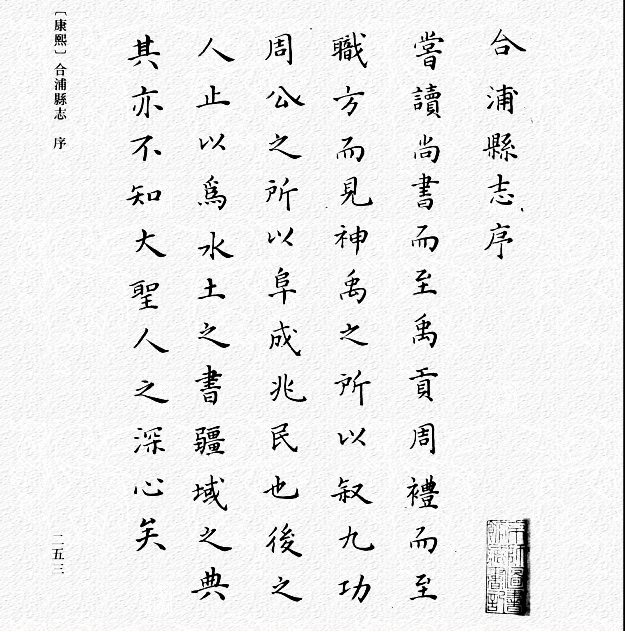 合浦縣志序
嘗讀尚書而至禹貢周禮而至
職方而見神禹之所以敘九功
周公之所以阜成兆民也後之
人止以爲水土之書疆域之典
其亦不知大聖人之深心矣
〔康熙〕合浦縣志 序
二五三